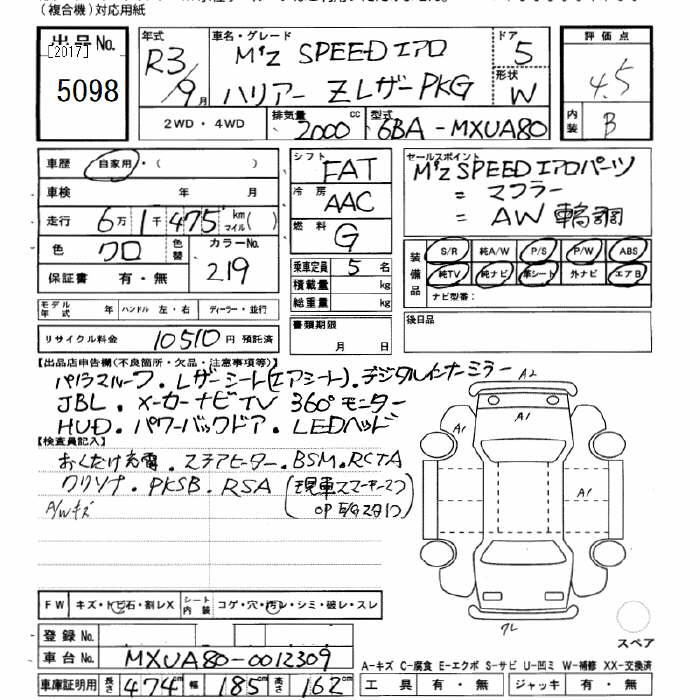 （複合機）対応用紙
出品No.
[2017]
5098
年式 R3/9月
車名・グレード M'z SPEED エアロ
ハリアー Z レザーPKG
ドア 5
形状 W
評価点 4.5
内装 B
2WD・4WD
排気量 2000 cc
型式 6BA-MXUA80
車歴 自家用・（ ）
車検 年 月
走行 6万1千475 km マイル( )
色 クロ 色替 カラーNo. 219
保証書 有・無
シフト FAT
冷房 AAC
燃料 G
乗車定員 5 名
積載量 kg
総重量 kg
セールスポイント
M'z SPEED エアロパーツ
= マフラー
= AW 車高調
装備品 S/R 純A/W P/S P/W ABS
純TV 純ナビ 革シート 外ナビ エアB
ナビ型番：
モデル年式 年 ハンドル 左・右 ディーラー・並行
リサイクル料金 10510 円 預託済
書類期限 月 日
後日品
【出品店申告欄（不良箇所・欠品・注意事項等）】
パノラマルーフ．レザーシート(エアシート)．デジタルインナーミラー
JBL．メーカーナビTV 360°モニター
HUD．パワーバックドア．LEDヘッド
【検査員記入】
おくだけ充電．ステアヒーター．BSM．RCTA
クリソナ．PKSB．RSA（現車スマーキー2つ
OP E/Gスタ1つ）
A/Wキズ
A2
A1
A1
A1
クレ
FW キズ・トビ石・割レX シート内装 コゲ・穴・汚レ・シミ・破レ・スレ
登録No.
車台No. MXUA80-0012309
車庫証明用 長さ 474cm 幅 185cm 高さ 162cm
スペア
A-キズ C-腐食 E-エクボ S-サビ U-凹ミ W-補修 XX-交換済
工具 有・無 ジャッキ 有・無